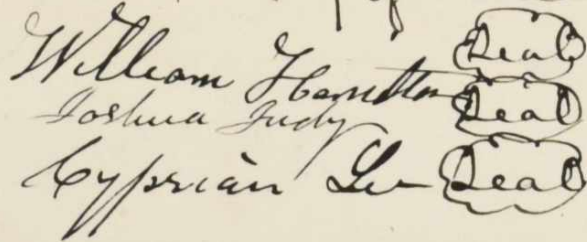 William Hamilton Seal
Joshua Judy Seal
Cyprian Lee Seal